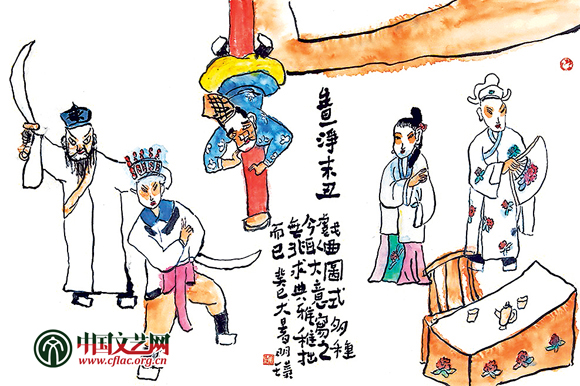 生旦淨末丑
戲曲圖式多種
今以大意寫之
無非求典雅稚拙
而已 癸巳大暑明
中国文艺网
www.cflac.org.cn